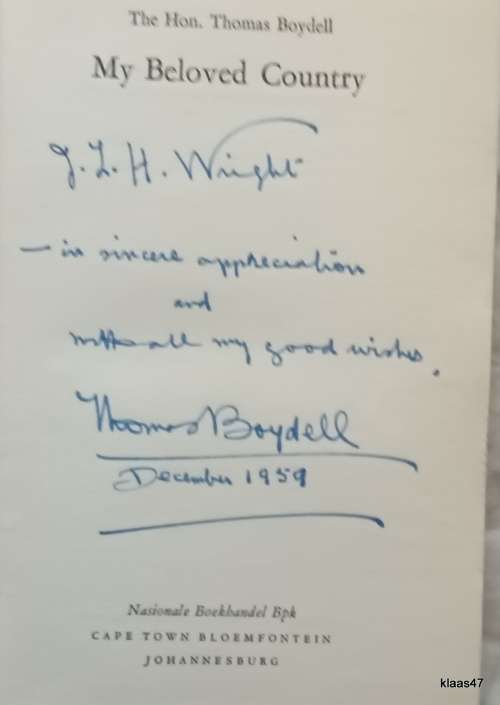 The Hon. Thomas Boydell
My Beloved Country
J. L. H. Wright
— in sincere appreciation
and
with all my good wishes.
Thomas Boydell
December 1959
Nasionale Boekhandel Bpk
CAPE TOWN BLOEMFONTEIN
JOHANNESBURG
klaas47